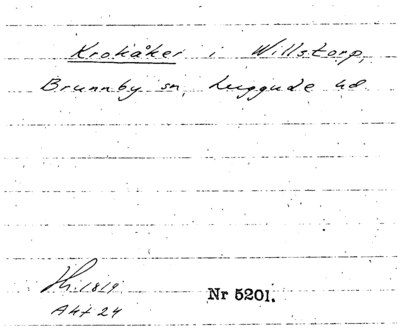 Krokåker i Willstorp,
Brunnby sn, Luggude hd
Hi. 1819
Akt 24
Nr 5201.